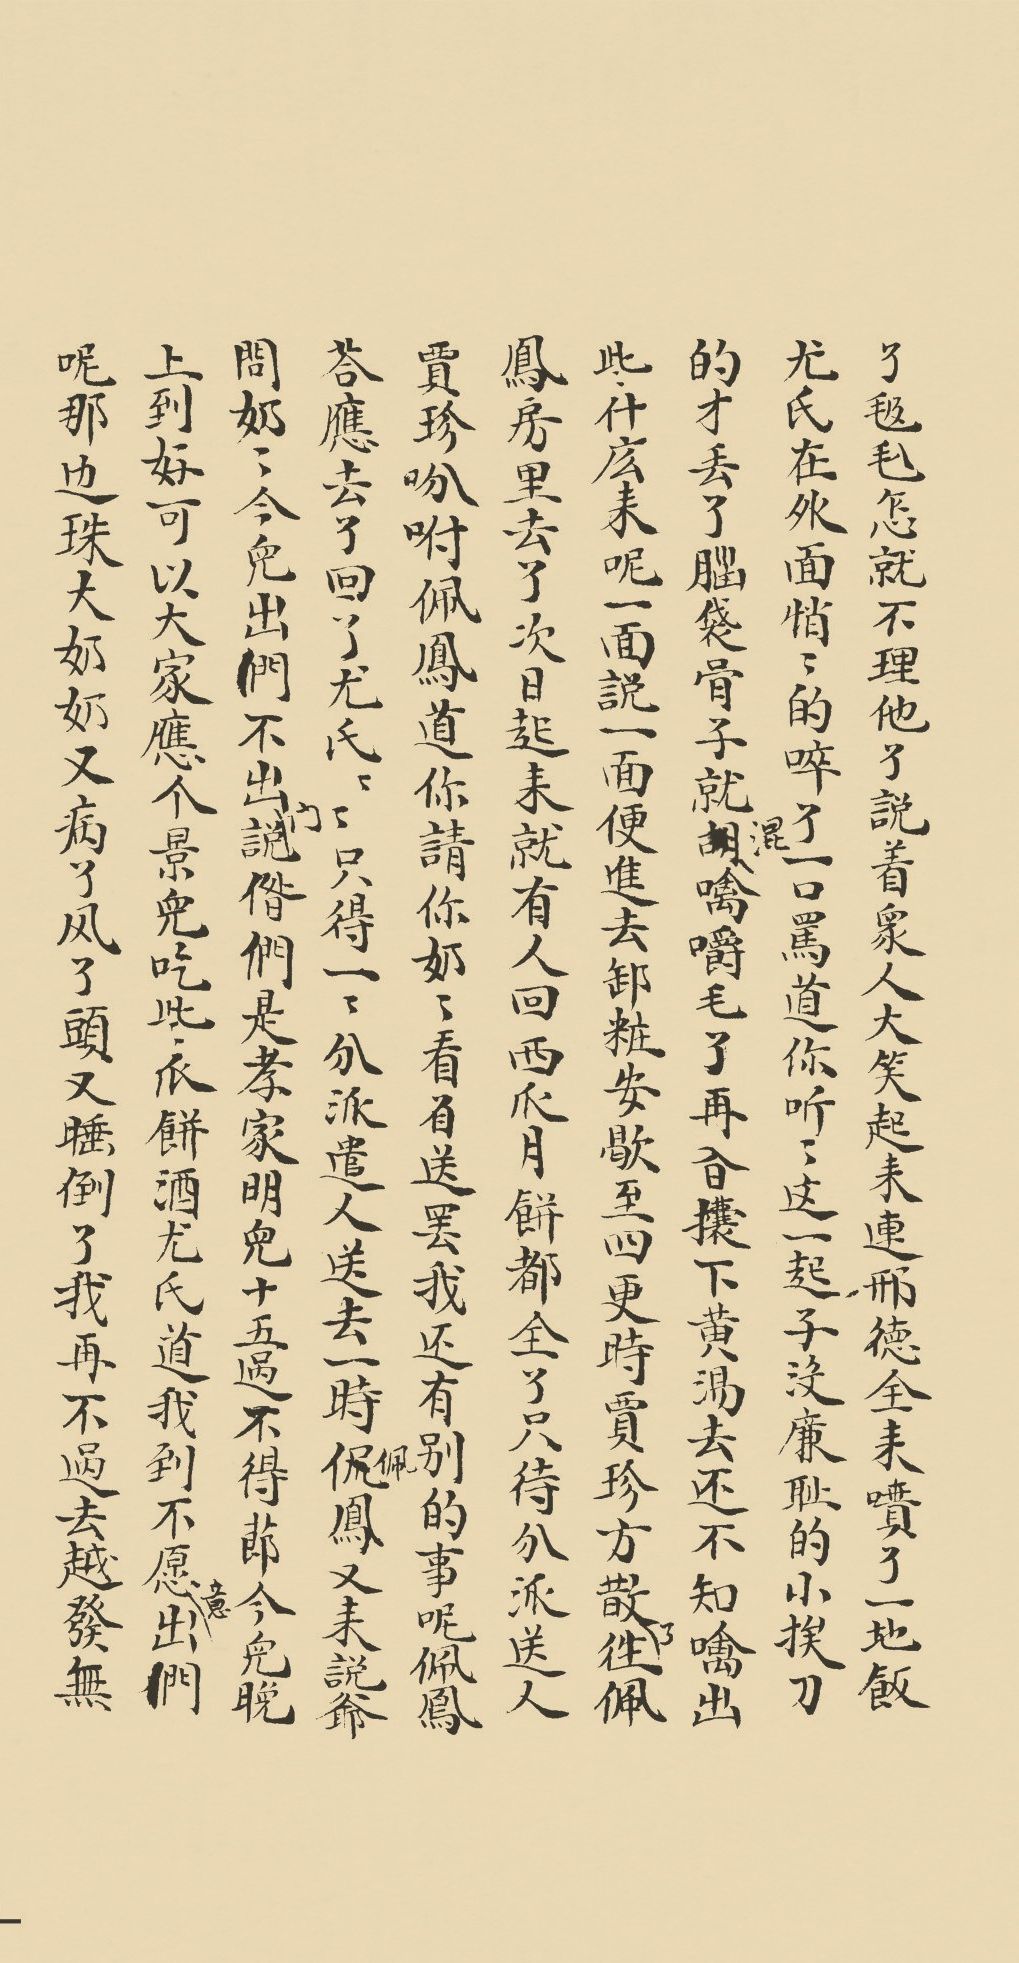 了毬毛怎就不理他了説着衆人大笑起来連邢德全来噴了一地飯
尤氏在外面悄〻的啐了一口罵道你听〻这一起子没廉耻的小挨刀
的才丢了腦袋骨子就胡混噙嚼毛了再肏攮下黄湯去还不知噙出
些什広来呢一面説一面便進去卸粧安歇至四更時賈珍方散了往佩
鳳房里去了次日起来就有人回西瓜月餅都全了只待分派送人
賈珍吩咐佩鳳道你請你奶〻看着送罢我还有别的事呢佩鳳
答應去了回了尤氏〻〻只得一〻分派遣人送去一時佩鳳又来説爺
問奶〻今兒出們不出門説偺們是孝家明兒十五過不得節今兒晚
上到好可以大家應个景兒吃些瓜餅酒尤氏道我到不愿意出們
呢那边珠大奶奶又病了风了頭又睡倒了我再不過去越發無